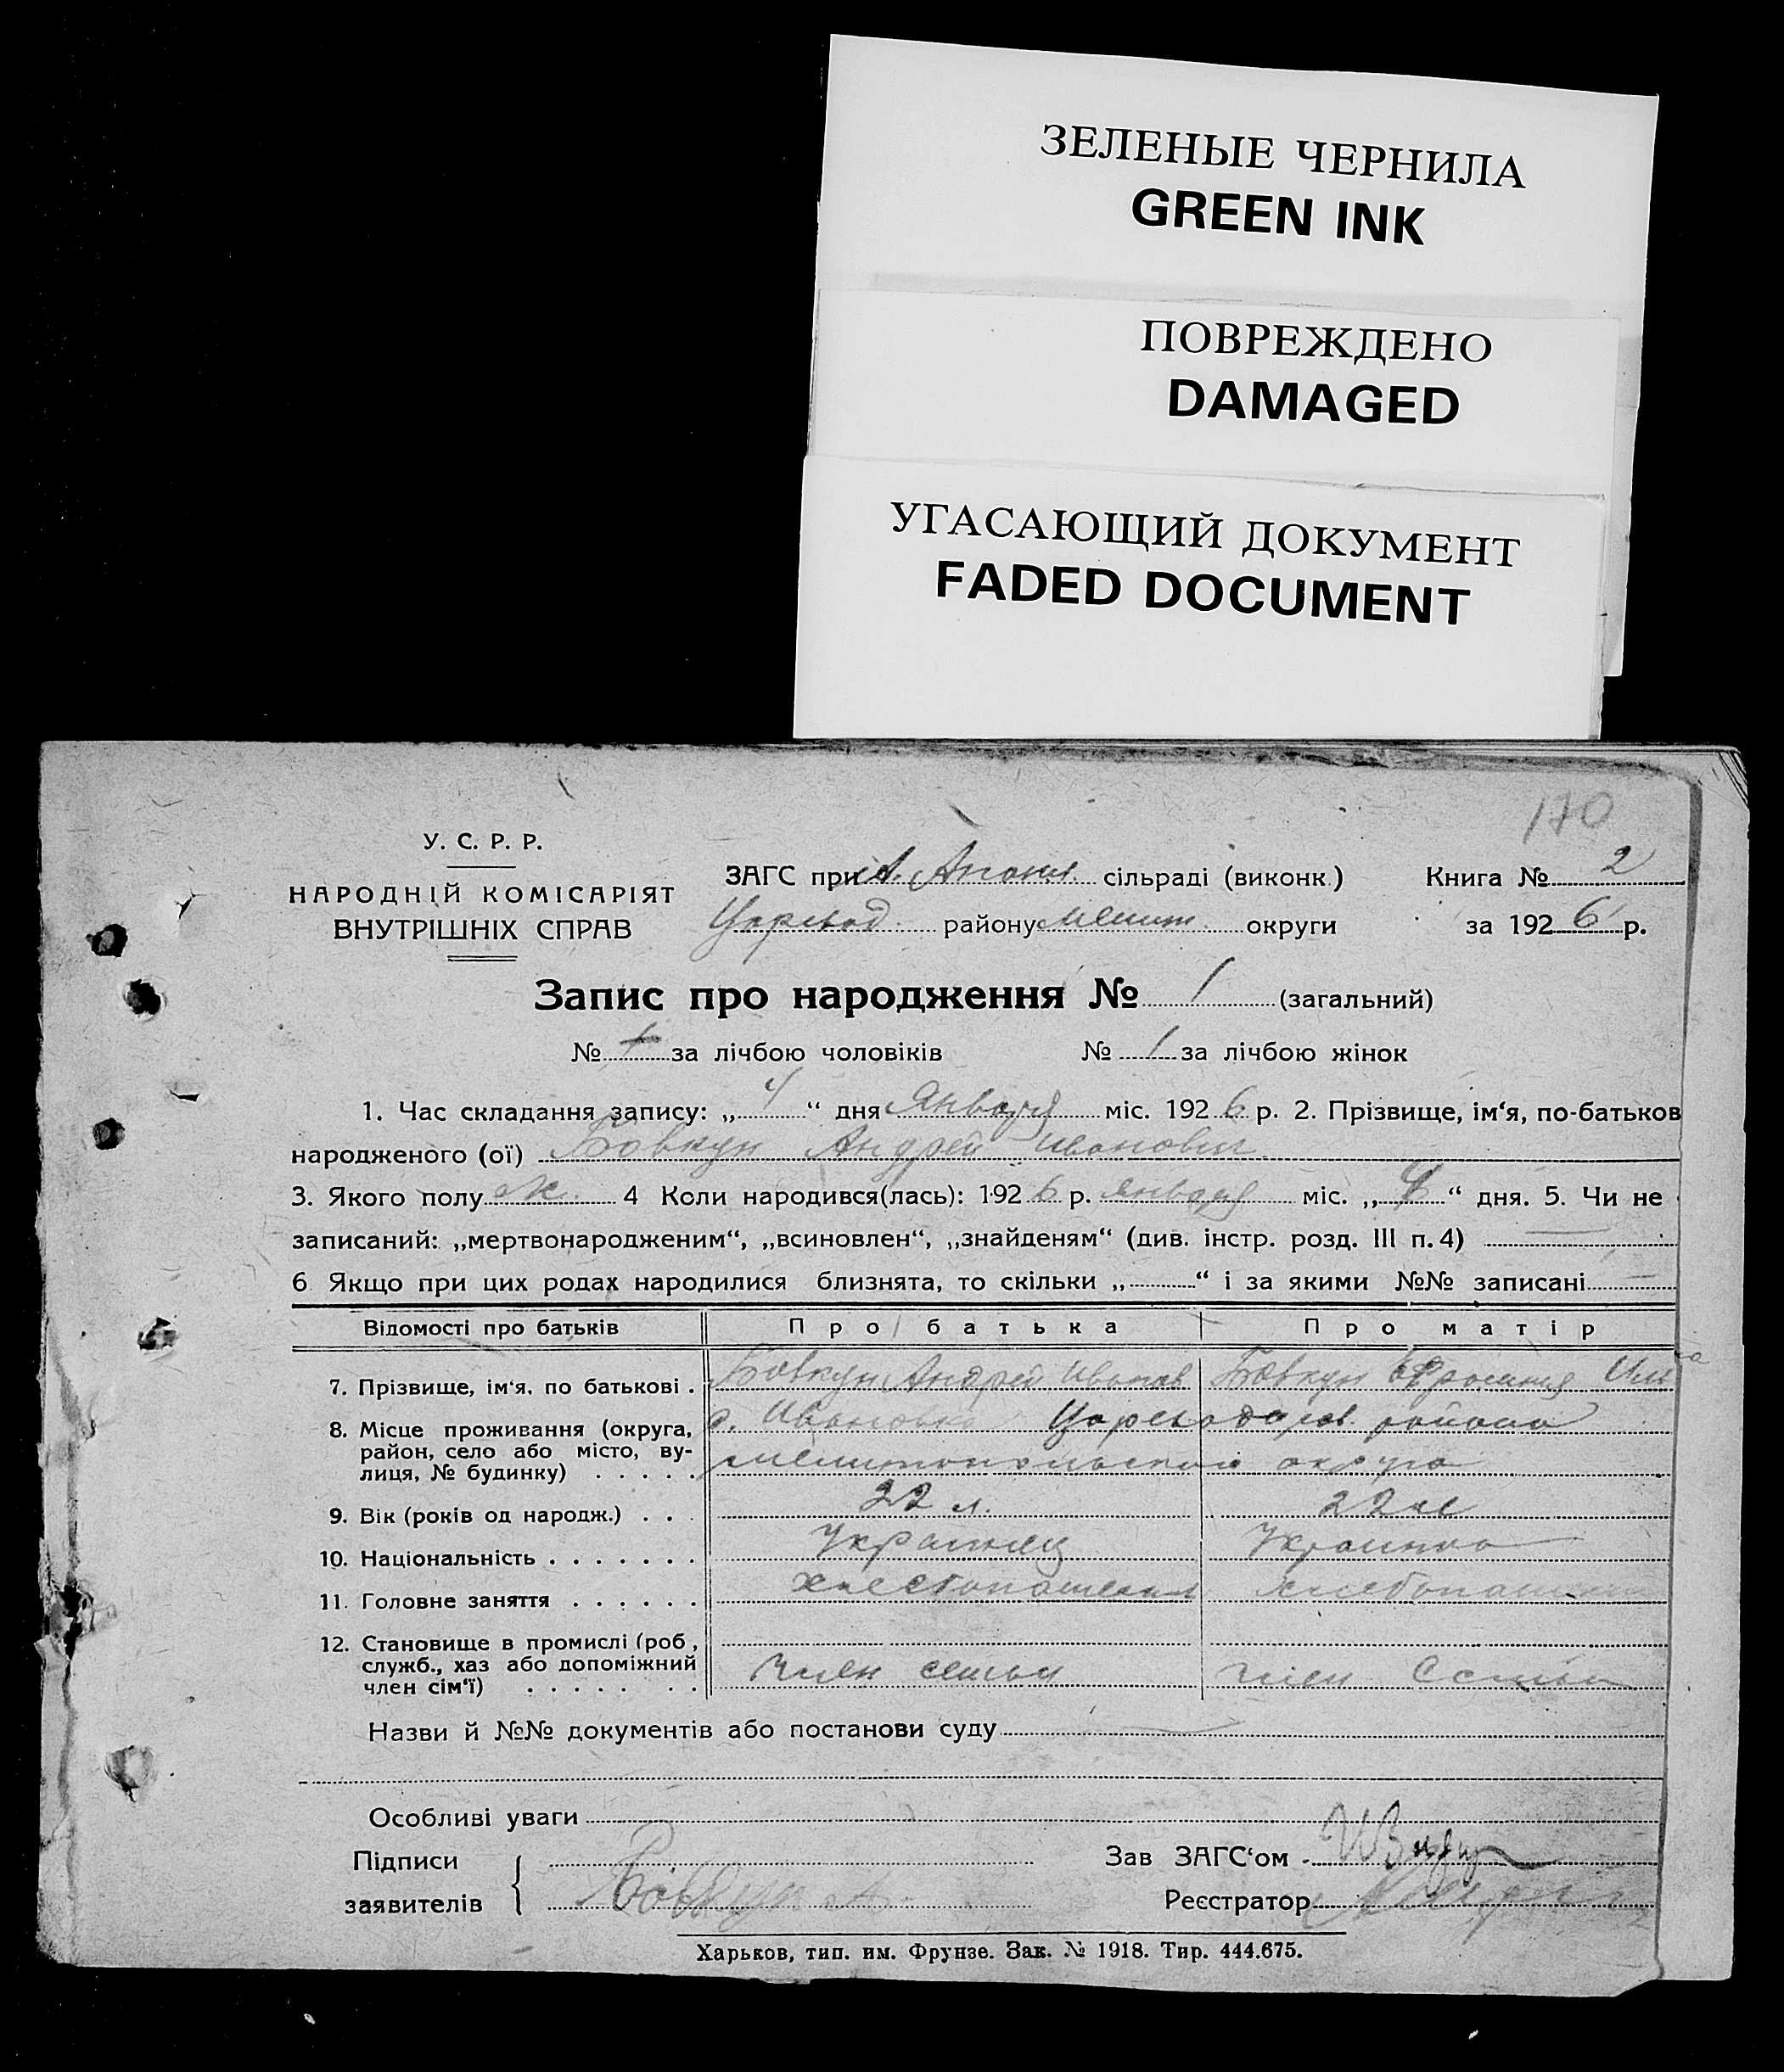 ЗЕЛЕНЫЕ ЧЕРНИЛА
GREEN INK
ПОВРЕЖДЕНО
DAMAGED
УГАСАЮЩИЙ ДОКУМЕНТ
FADED DOCUMENT
170
У. С. Р. Р.
НАРОДНІЙ КОМІСАРІЯТ
ВНУТРІШНІХ СПРАВ
ЗАГС при сільраді (виконк.) Книга № 2
району Мелит округи за 1926 р.
Запис про народження № 1 (загальний)
№ за лічбою чоловіків № 1 за лічбою жінок
1. Час складання запису: „4“ дня Января міс. 1926 р. 2. Прізвище, ім‘я, по-батьков
народженого (ої) Бовкун Андрей Иванович
3. Якого полу 4 Коли народився(лась): 1926 р. Января міс. „ “ дня. 5. Чи не
записаний: „мертвонародженим“, „всиновлен“, „знайденям“ (див. інстр. розд. III п. 4)
6 Якщо при цих родах народилися близнята, то скільки „ “ і за якими №№ записані
Відомості про батьків Про батька Про матір
7. Прізвище, ім‘я, по батькові . Бовкун Андрей Иванов Бовкун
8. Місце проживання (округа, с. Ивановка района
район, село або місто, ву- Мелитопольской округа
лиця, № будинку) . . . . .
9. Вік (років од народж.) . . . 22 л. 22
10. Національність . . . . . . . Украинец Украинка
11. Головне заняття . . . . . .
12. Становище в промислі (роб,
служб., хаз або допоміжний член семьи член Семьи
член сім‘ї) . . . . . . .
Назви й №№ документів або постанови суду
Особливі уваги
Підписи Зав ЗАГС‘ом
заявителів Бовкун А Реєстратор
Харьков, тип. им. Фрунзе. Зак. № 1918. Тир. 444.675.